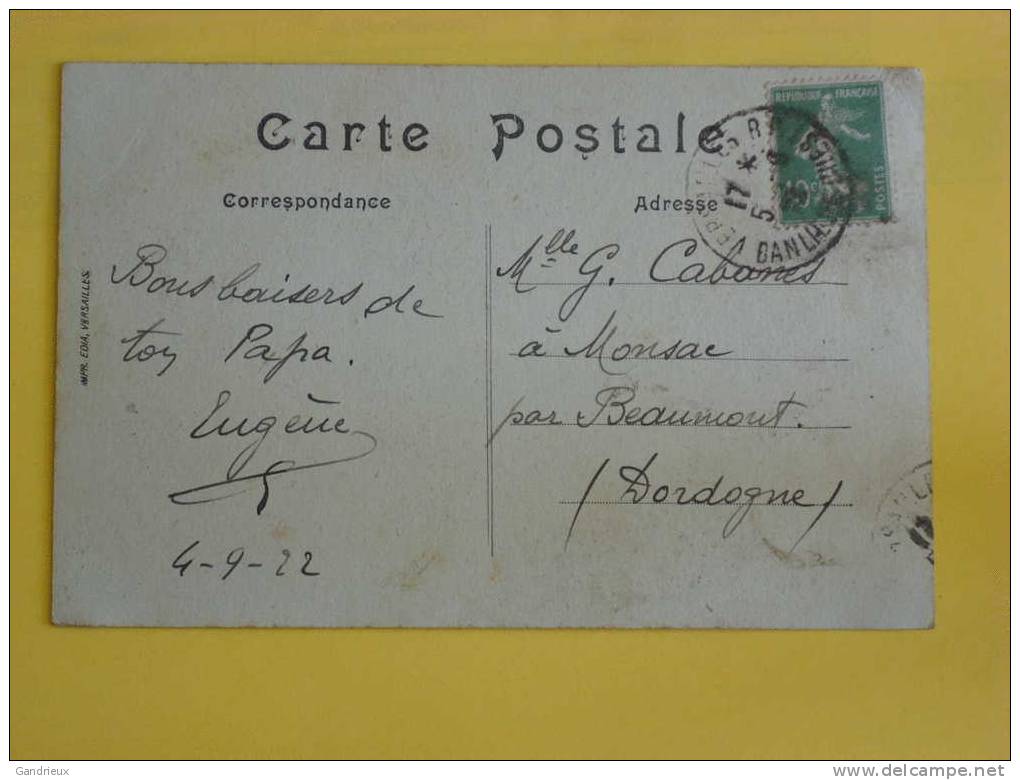 Carte Postale
Correspondance
Adresse
REPUBLIQUE FRANÇAISE
10c
POSTES
17 *
5
VERSAILLES R.P.
BANLIEUE
Bons baisers de
ton Papa.
Eugène
4-9-22
Mlle G. Cabanes
à Monsac
par Beaumont.
(Dordogne)
IMPR. EDIA, VERSAILLES.
Gandrieux
www.delcampe.net